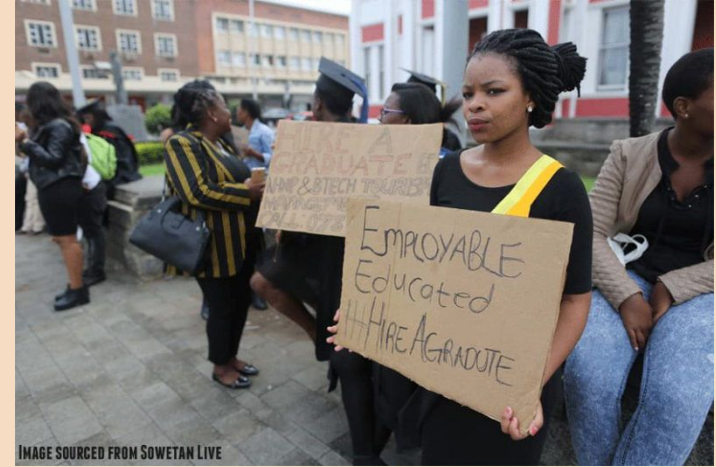 HERE A
GRADUATE
N-DIP & BTECH TOURISM
MANAGEMENT
CALL:
EMPLOYABLE
Educated
#HIREAGRADUTE
IMAGE SOURCED FROM SOWETAN LIVE